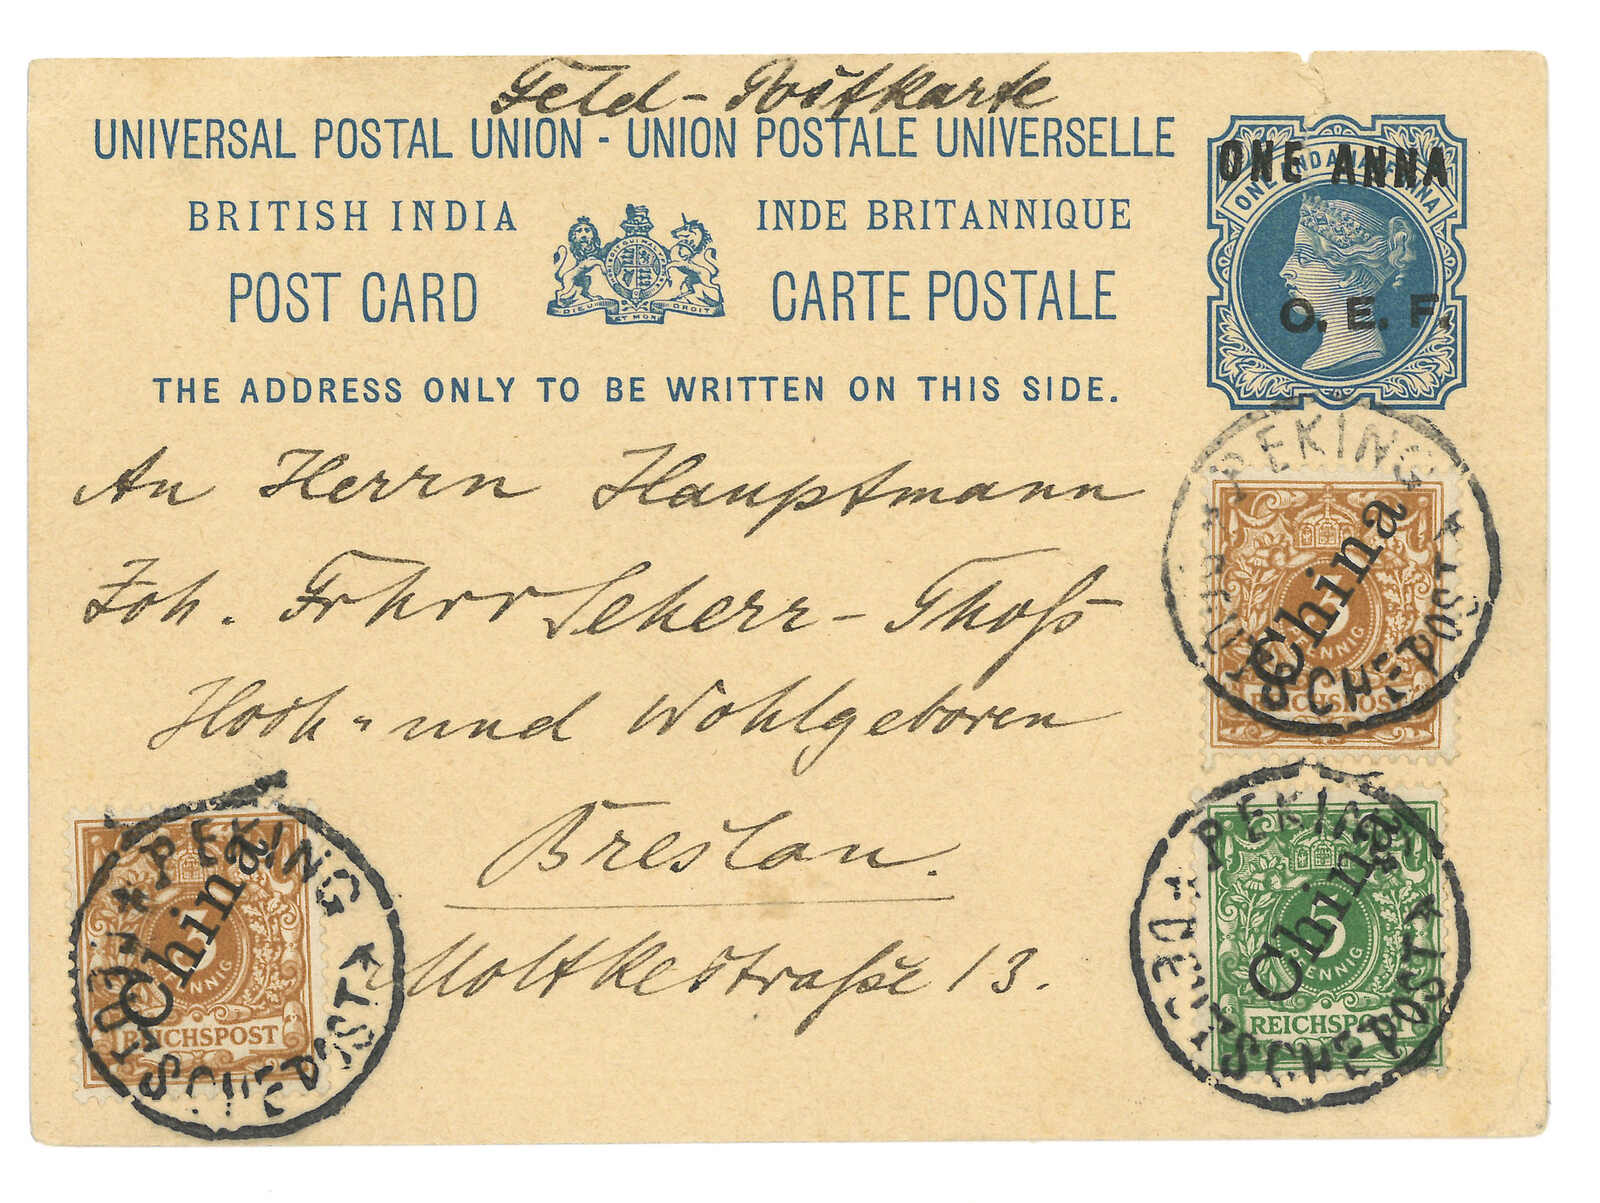 Feld-Postkarte
UNIVERSAL POSTAL UNION - UNION POSTALE UNIVERSELLE
BRITISH INDIA INDE BRITANNIQUE
POST CARD CARTE POSTALE
DIEU ET MON DROIT
THE ADDRESS ONLY TO BE WRITTEN ON THIS SIDE.
ONE ANNA
O. E. F.
An Herrn Hauptmann
Joh. Frhrr Seherr-Thoß
Hooh- und Wohlgeboren
Breslau.
Moltkestraße 13.
PEKING DEUTSCHE POST
China
PFENNIG
REICHSPOST
PEKING DEUTSCHE POST
China
5
PFENNIG
REICHSPOST
PEKING DEUTSCHE POST
China
PFENNIG
REICHSPOST